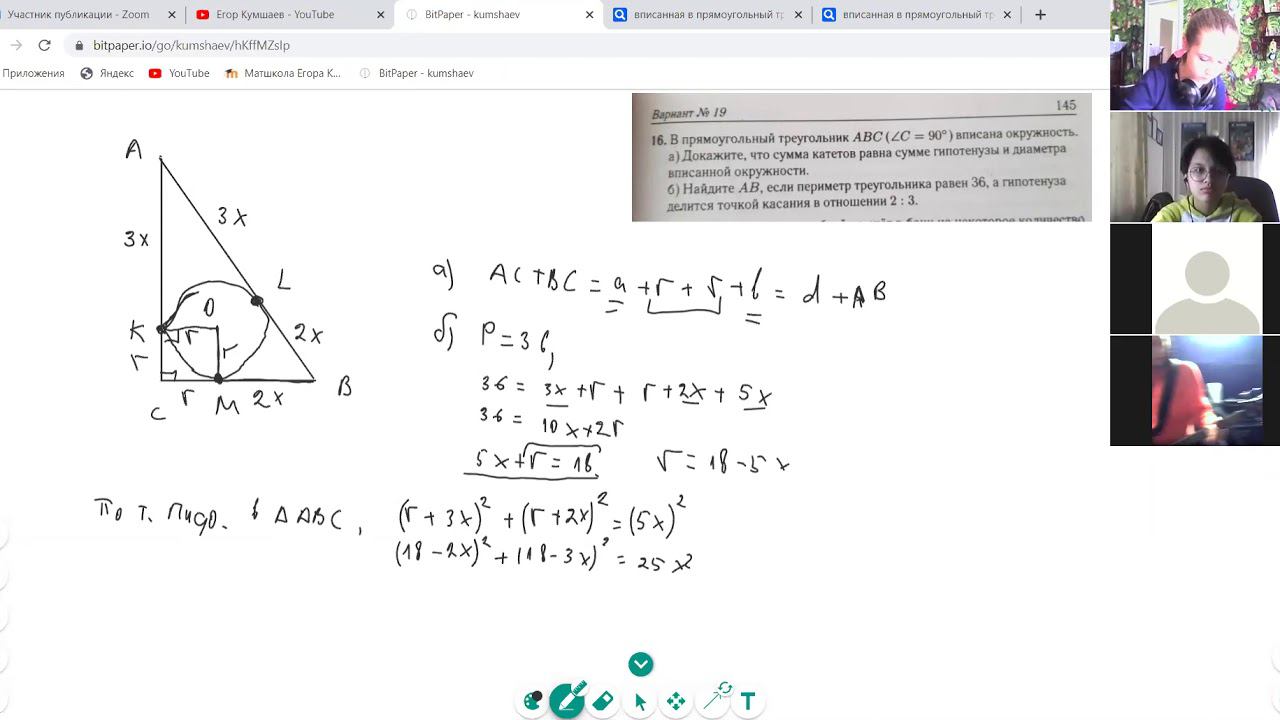 Участник публикации - Zoom
Егор Кумшаев - YouTube
BitPaper - kumshaev
вписанная в прямоугольный тр
вписанная в прямоугольный тр
bitpaper.io/go/kumshaev/hKffMZslp
Приложения
Яндекс
YouTube
Матшкола Егора К...
BitPaper - kumshaev
Вариант № 19
145
16. В прямоугольный треугольник ABC (∠C = 90°) вписана окружность.
а) Докажите, что сумма катетов равна сумме гипотенузы и диаметра
вписанной окружности.
б) Найдите AB, если периметр треугольника равен 36, а гипотенуза
делится точкой касания в отношении 2 : 3.
A
3x
3x
L
O
K
r
r
2x
r
B
C
r
M
2x
а) AC+BC = a + r + r + b = d + AB
б) P = 36,
36 = 3x + r + r + 2x + 5x
36 = 10x + 2r
5x + r = 18
r = 18 - 5x
По т. Пифо. в ΔABC, (r + 3x)² + (r + 2x)² = (5x)²
(18 - 2x)² + (18 - 3x)² = 25x²
T